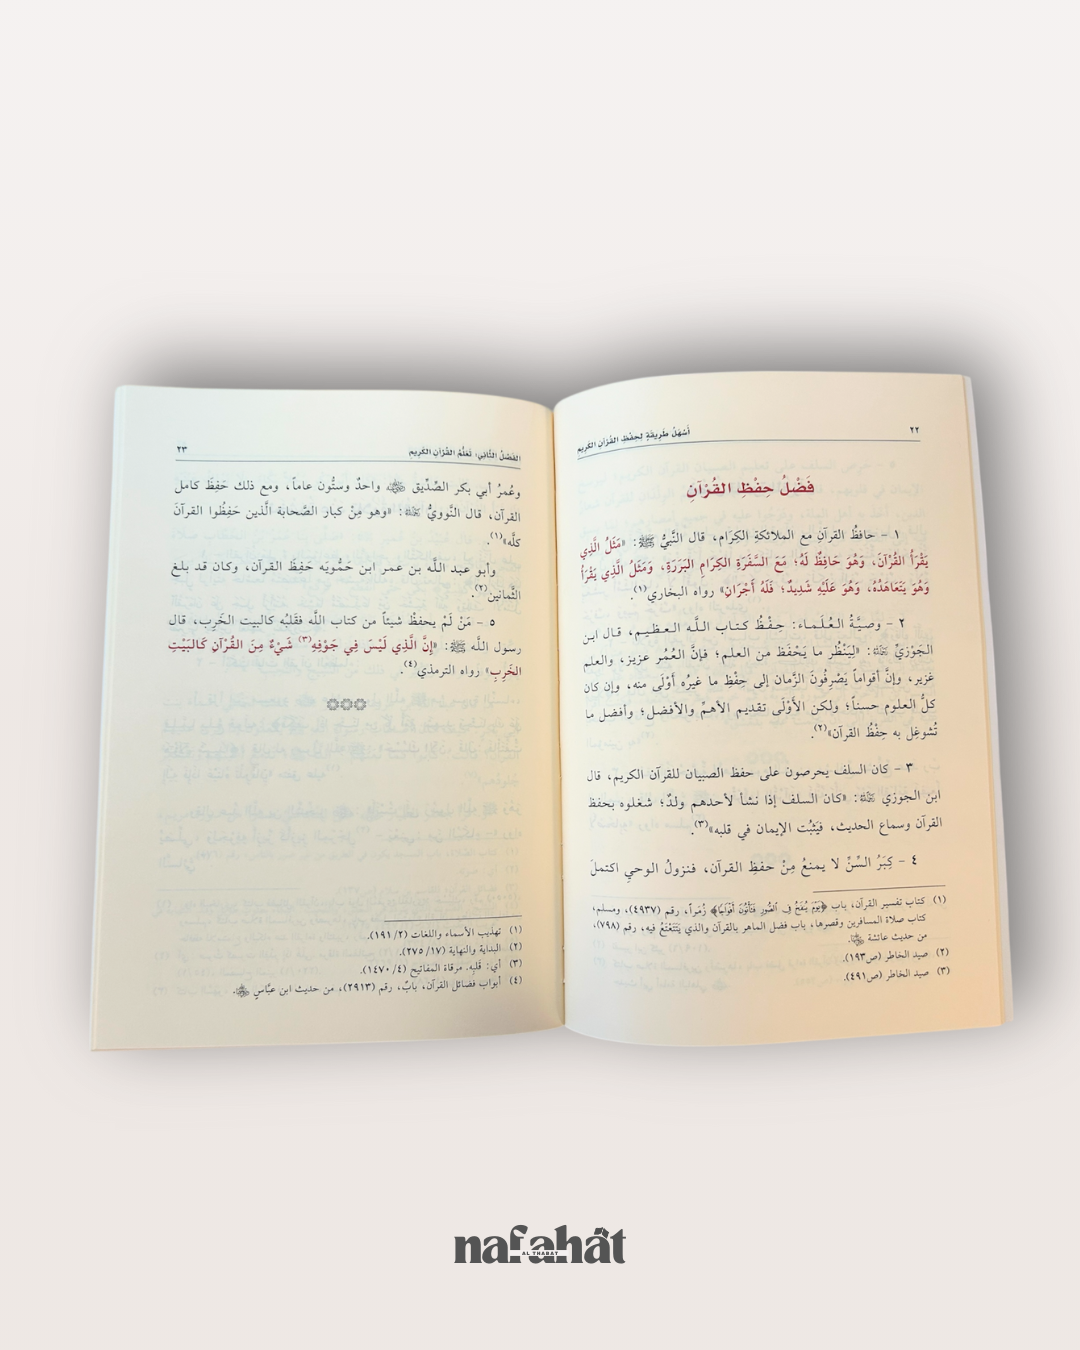 ٢٢
أَسْهَلُ طَرِيقَةٍ لِحِفْظِ القُرْآنِ الكَرِيمِ
فَضْلُ حِفْظِ القُرْآنِ
١ - حافظُ القرآنِ مع الملائكةِ الكِرَام، قال النَّبيُّ ﷺ: «مَثَلُ الَّذِي
يَقْرَأُ القُرْآنَ، وَهُوَ حَافِظٌ لَهُ؛ مَعَ السَّفَرَةِ الكِرَامِ البَرَرَةِ، وَمَثَلُ الَّذِي يَقْرَأُ
وَهُوَ يَتَعَاهَدُهُ، وَهُوَ عَلَيْهِ شَدِيدٌ؛ فَلَهُ أَجْرَانِ» رواه البخاري(١).
٢ - وصيَّةُ العُلَماء: حِفْظُ كتاب اللَّه العظيم، قال ابن
الجَوْزيِّ ﵀: «لِيَنْظُر ما يَحْفَظ من العلم؛ فإنَّ العُمُر عزيز، والعلم
غزير، وإنَّ أقواماً يَصْرِفُونَ الزَّمان إلى حِفْظِ ما غيرُه أَوْلَى منه، وإن كان
كلُّ العلوم حسناً؛ ولكن الأَوْلَى تقديم الأهمّ والأفضل؛ وأفضل ما
تُشوغِل به حِفْظُ القرآن»(٢).
٣ - كان السلف يحرصون على حفظ الصبيان للقرآن الكريم، قال
ابن الجوزي ﵀: «كان السلف إذا نشأ لأحدهم ولدٌ؛ شغلوه بحفظ
القرآن وسماع الحديث، فيَثبُت الإيمان في قلبه»(٣).
٤ - كِبَرُ السِّنِّ لا يمنعُ مِنْ حفظِ القرآن، فنزولُ الوحي اكتملَ
(١) كتاب تفسير القرآن، باب ﴿يَوْمَ يُنفَخُ فِي ٱلصُّورِ فَتَأْتُونَ أَفْوَاجًا﴾ زُمَراً، رقم (٤٩٣٧)، ومسلم،
كتاب صلاة المسافرين وقصرها، باب فضل الماهر بالقرآن والذي يَتَتَعْتَعُ فيه، رقم (٧٩٨)،
من حديث عائشة ﵂.
(٢) صيد الخاطر (ص١٩٣).
(٣) صيد الخاطر (ص٤٩١).
الفَصْلُ الثَّانِي: تَعَلُّمُ القُرْآنِ الكَرِيمِ
٢٣
وعُمرُ أبي بكر الصِّدِّيق ﵁ واحدٌ وستُّون عاماً، ومع ذلك حَفِظَ كامل
القرآن، قال النَّوويُّ ﵀: «وهو مِنْ كبار الصَّحابة الَّذين حَفِظُوا القرآنَ
كلَّه»(١).
وأبو عبد اللَّه بن عمر ابن حَمُّويَه حَفِظَ القرآن، وكان قد بلغ
الثَّمانين(٢).
٥ - مَنْ لَمْ يحفظْ شيئاً من كتاب اللَّه فقَلبُه كالبيت الخَرِب، قال
رسول اللَّه ﷺ: «إِنَّ الَّذِي لَيْسَ فِي جَوْفِهِ(٣) شَيْءٌ مِنَ القُرْآنِ كَالبَيْتِ
الخَرِبِ» رواه الترمذي(٤).
(١) تهذيب الأسماء واللغات (١٩١/٢).
(٢) البداية والنهاية (٢٧٥/١٧).
(٣) أي: قَلبِه. مرقاة المفاتيح (١٤٧٠/٤).
(٤) أبواب فضائل القرآن، بابٌ، رقم (٢٩١٣)، من حديث ابن عبَّاسٍ ﵄.
nafahat
AL THABAT